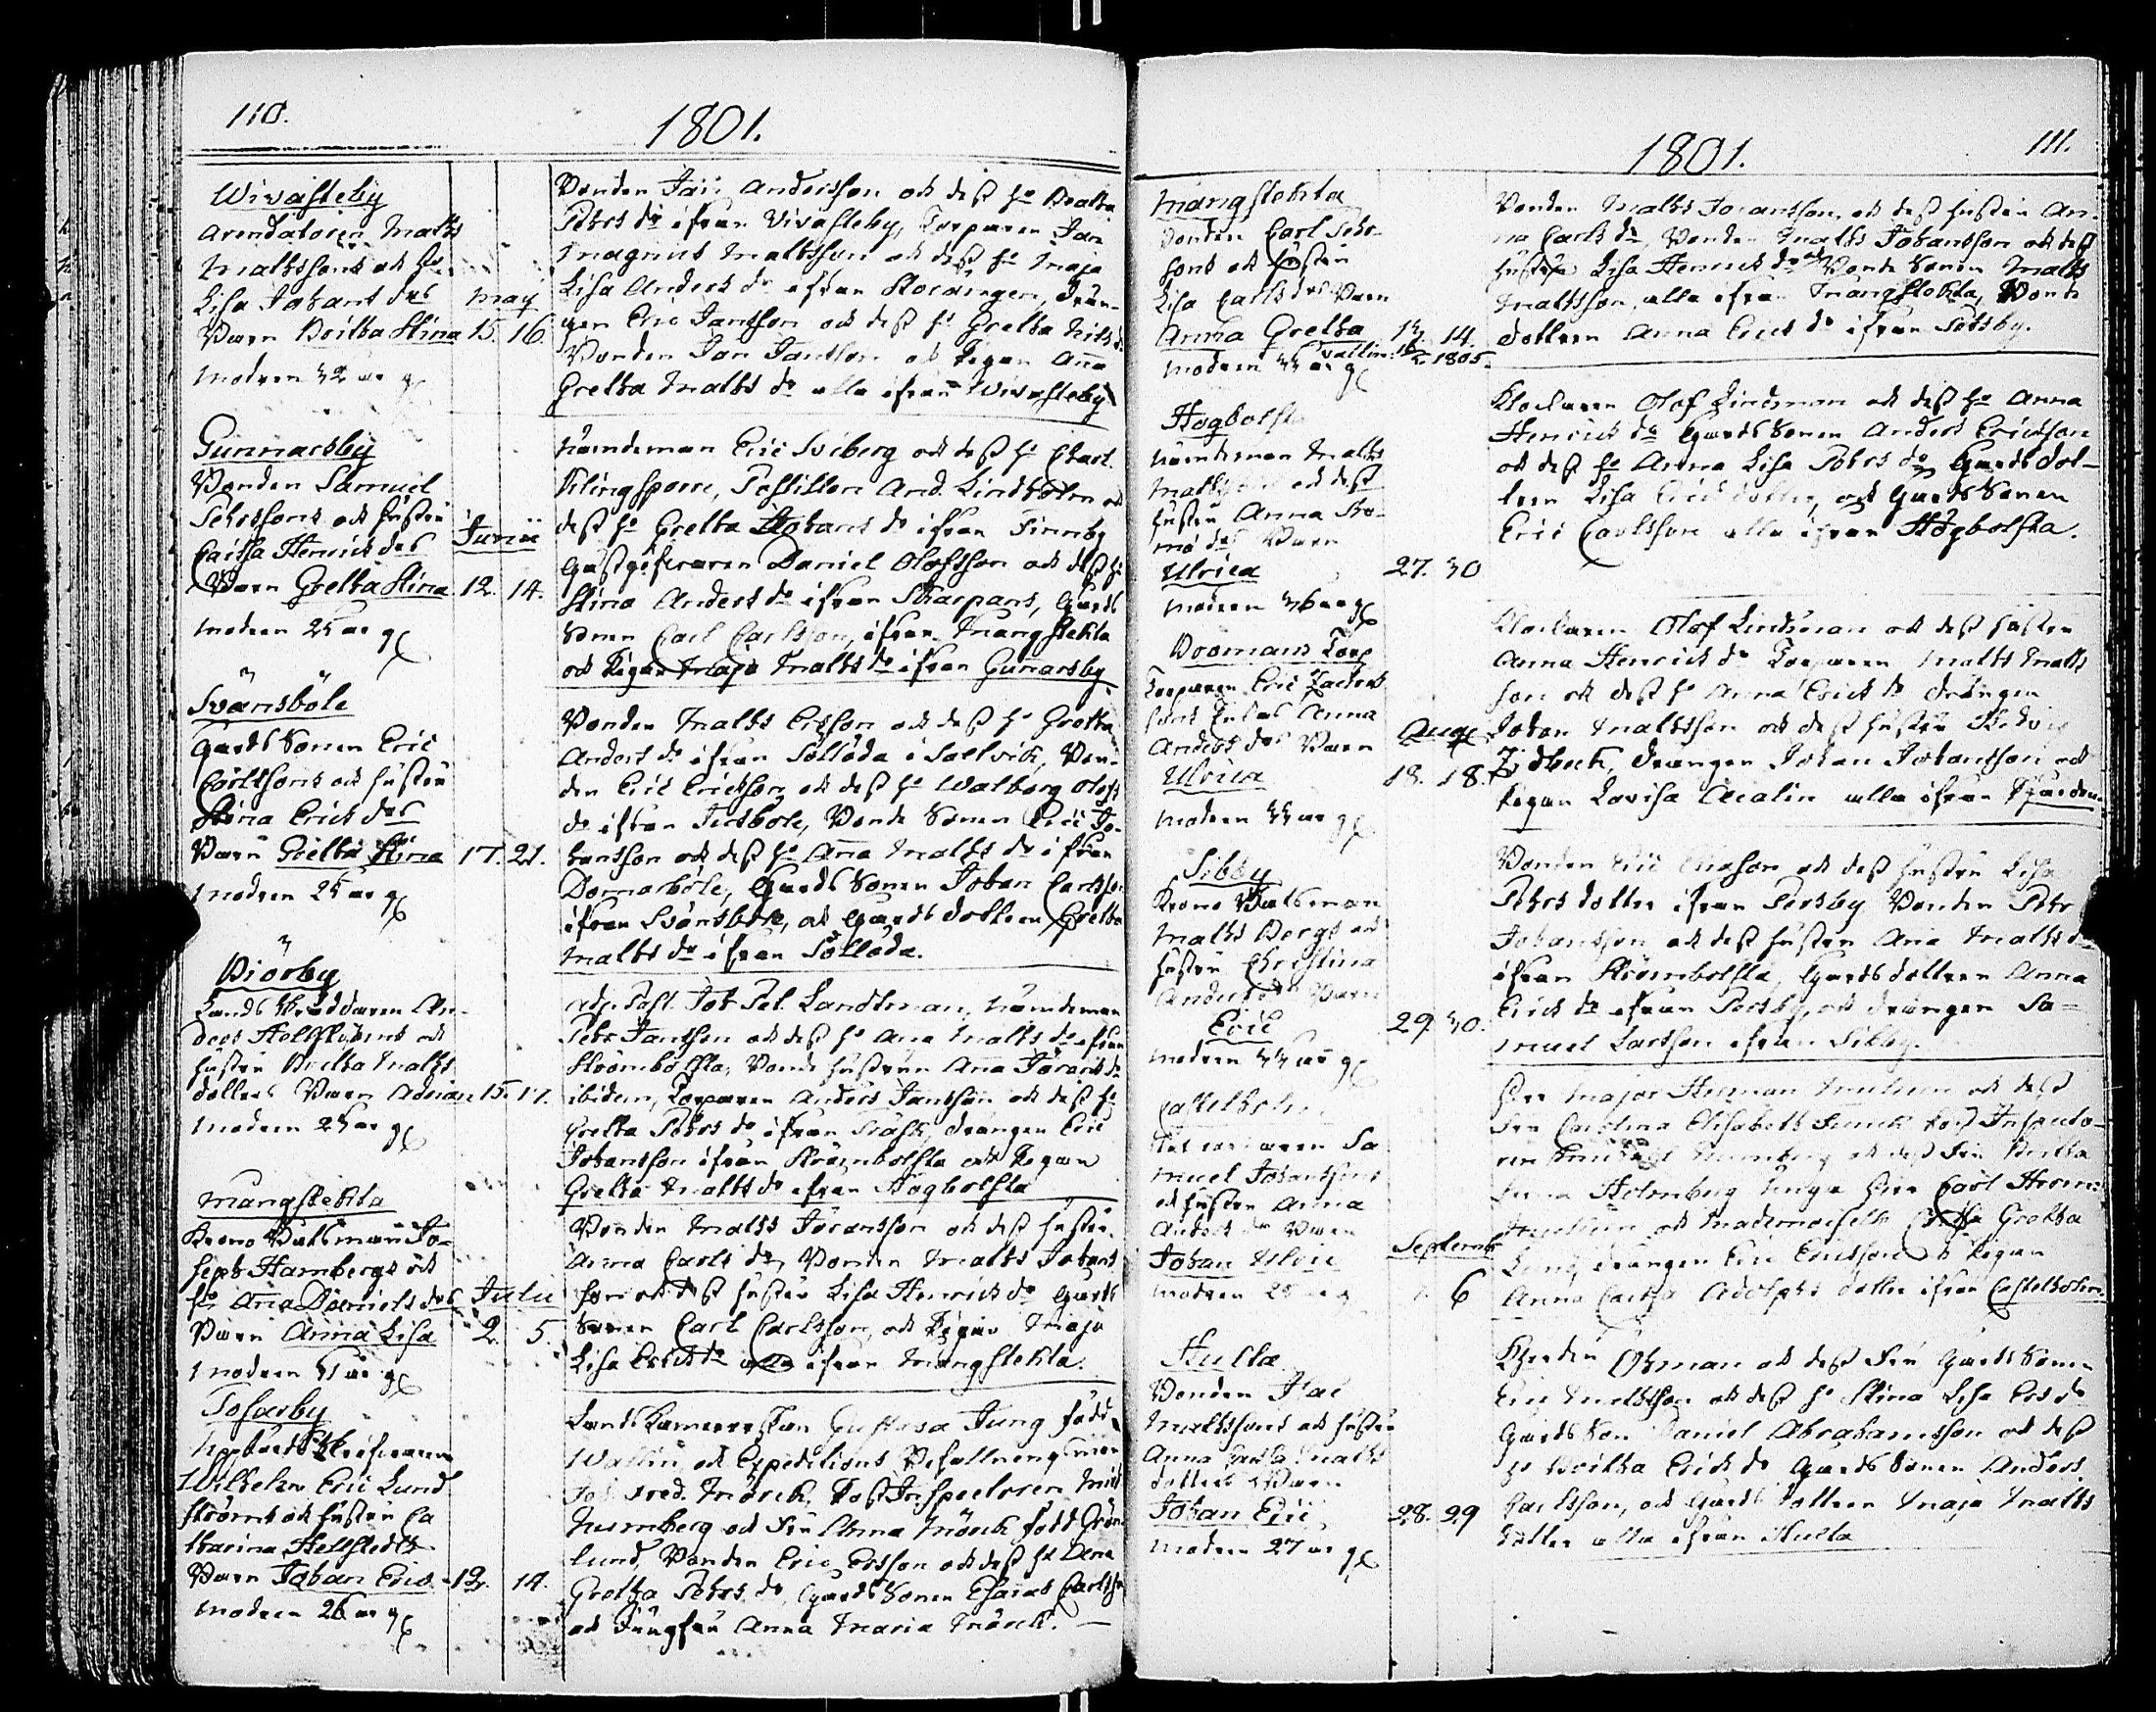 110.
1801.
Wivasteby
Arendatoren Matts
Mattssons och h:
Lisa Johans drs
Barn Britta Stina
modren 32 år g
Maij
15. 16.
Bonden Jan Andersson och dess h: Brita
Pehrs dr ifrån Vivasteby, Torparen Jan
Magnus Mattsson och dess h: Maja
Lisa Anders dr ifrån Drän-
gen Eric Jansson och dess h: Gretta Nils dr
Bonden Jan Jansson och Pigan Anna
Gretta Matts dr alla ifrån Wivasteby
Gunnarsby
Bonden Samuel
Pehrssons och hustru
Caissa Henrics drs
Barn Gretta Stina
modren 25 år g
Junii
12. 14.
Nämdeman Eric Sviberg och dess h: Charl.
Klingspore, Postillon And. Lindholm och
dess h: Gretta Johans dr ifrån Finnby
Gästgifvaren Daniel Olofsson och dess h:
Stina Anders dr ifrån Skarpans, Gårds
Sonen Carl Carlsson, ifrån Mångstekta
och Pigan Maja Matts dr ifrån Gunnarsby
Svänsböle
Gårds Sonen Eric
Carlssons och hustru
Stina Erics drs
Barn Gretta Stina
modren 25 år g
17. 21.
Bonden Matts Ersson och dess h: Gretta
Anders dr ifrån Sölläda i Saltvik, Bon-
den Eric Ericsson och dess h: Walborg Olofs
dr ifrån Jutböle, Bonde Sonen Eric Jo-
hansson och dess h: Anna Matts dr ifrån
Domarböle, Gårds Sonen Johan Carlsson
ifrån Svänsböle, och Gårds dottren Gretta
Matts dr ifrån Sölläda.
Biörby
Lands Skräddaren An-
ders Hellströms och
hustru Britta Matts
dotters Barn Adrian
modren 25 år g
15. 17.
Adj. Past. Joh. Pet. Landtman, Nämdeman
Pehr Jansson och dess h: Ana Matts dr ifrån
Strömbolsta, Bonde hustrun Anna Jörans dr
ibidem, Torparen Anders Jansson och dess h:
Gretta Pehrs dr ifrån Träsk, drängen Eric
Johansson ifrån Strömbolsta och Pigan
Gretta Matts dr ifrån Högbolsta
Mångstekta
Krono Båtsman Jo-
seph Hambergs och
h: Ana Daniels drs
Barn Anna Lisa
modren 31 år g
Julii
2. 5.
Bonden Matts Jöransson och dess hustru
Anna Carls dr, Bonden Matts Johans
son och dess hustru Lisa Henrics dr Gårds
Sonen Carl Carlsson, och Pigan Maja
Lisa Erics dr alla ifrån Mångstekta.
Tosarby
Häradsskrifvaren
Wilhelm Eric Lund
ströms och hustru Ca
tharina Hellstedts
Barn Johan Eric
modren 26 år g
13. 14.
Lands Kamrers Fru Gustava Jung född
Wallin, och Expeditions Befallningsman
Joh. Fred. Mörck, Post Inspectoren
Nurmberg och Fru Anna Mörck född Grön-
lund, Bonden Eric Ersson och dess h: Lena
Gretta Pehrs dr Gårds Sonen Esaias Carlsson
och Jungfru Anna Maria Mörck.
1801.
111.
Mångstekta
Bonden Carl Pehrs-
sons och hustru
Lisa Carls drs Barn
Anna Gretta
modren 33 år g
13. 14.
1805.
Bonden Matts Jöransson, och dess hustru An-
na Carls dr, Bonden Matts Johansson och dess
hustru Lisa Henrics dr och Bonde Sonen Matts
Mattsson, alla ifrån Mångstekta, Bonde
dottren Anna Erics dr ifrån Pålsby.
Högbolsta
Nämdeman Matts
Mattssons och dess
hustru Anna
Barn
Ulrica
modren 36 år g
27. 30
Klockaren Olof Lindeman och dess h: Anna
Henrics dr Gårds Sonen Anders Ericsson
och dess h: Anna Lisa Pehrs dr Gårds dot-
tren Lisa Erics dotter, och Gårds Sonen
Eric Carlsson alla ifrån Högbolsta.
Bromans Torp
Torparen Eric
Anna
Anders drs Barn
Ulrica
modren 33 år g
Aug
18. 18.
Klockaren Olof Lindeman och dess hustru
Anna Henrics dr Torparen Matts Matts
son och dess h: Anna Erics dr drängen
Johan Mattsson och dess hustru Hedvig
Zidbeck, drängen Johan Johansson och
Pigan Lovisa alla ifrån
Sibby
Krono Båtsman
Matts Bergs och
hustru Christina
Anders drs Barn
Eric
modren 33 år g
29. 30.
Bonden Eric Ersson och dess hustru Lisa
Pehrs dotter ifrån Persby Bonden Pehr
Johansson och dess hustru Ana Matts dr
ifrån Strömbolsta, Gårds dottren Anna
Erics dr ifrån Persby, och drängen Sa-
muel Larsson ifrån Sibby.
Castelholm
Samuel Johanssons
och hustru Anna
Anders drs Barn
Johan Ulric
modren 25 år g
Septemb
6
Herr Major Herman och dess
Fru Carolina Elisabeth Post Inspecto-
ren Nurmberg och dess Fru Britta
Holmberg Unga Herr Carl
och Mademoiselle Gretta
Jung, drängen Eric Ericsson och Pigan
Anna Caisa Adolphs dotter ifrån Castelholm.
Hulta
Bonden Isac
Mattssons och hustru
Anna Greta Matts
dotters Barn
Johan Eric
modren 27 år g
28. 29
Öhman och dess Fru Gårds Sonen
Eric Mattsson och dess h: Stina Lisa Ers dr
Gårds Son Daniel Abrahamsson och dess
h: Britta Erics dr Gårds Sonen Anders
Carlsson, och Gårds dottren Maja Matts
dotter alla ifrån Hulta